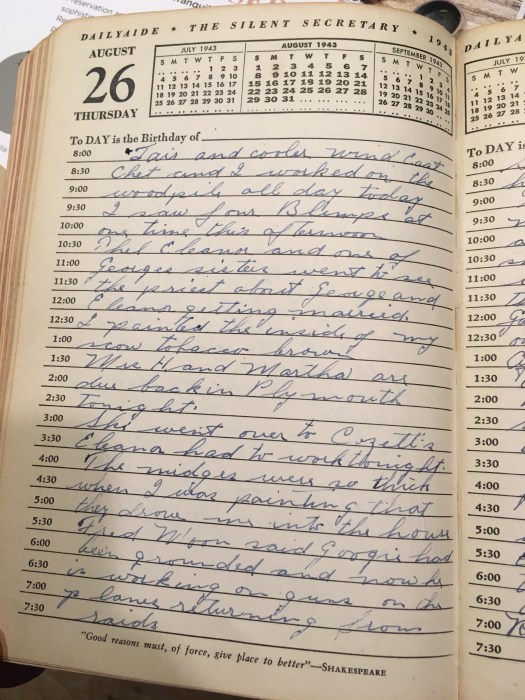 DAILYAIDE ★ THE SILENT SECRETARY ★ 194
AUGUST
26
THURSDAY
JULY 1943
S M T W T F S
1 2 3
4 5 6 7 8 9 10
11 12 13 14 15 16 17
18 19 20 21 22 23 24
25 26 27 28 29 30 31
AUGUST 1943
S M T W T F S
1 2 3 4 5 6 7
8 9 10 11 12 13 14
15 16 17 18 19 20 21
22 23 24 25 26 27 28
29 30 31
SEPTEMBER 1943
S M T W T F S
To DAY is the Birthday of
8:00 Fair and cooler wind East
8:30 Chet and I worked on the
9:00 woodpile all day today
9:30 I saw four Blimps at
10:00 one time this afternoon
10:30 Phel Eleanor and one of
11:00 Georges sister went to see
11:30 the priest about George and
12:00 Eleanor getting married.
12:30 I painted the inside of my
1:00 scow tobacco brown
1:30 Mrs H and Martha are
2:00 due back in Plymouth
2:30 Tonight.
3:00 She went over to Cozett's
3:30 Eleanor had to work tonight.
4:00 The midges were so thick
4:30 when I was painting that
5:00 they drove me into the house
5:30 Fred Moon said Googie had
6:00 been grounded and now he
6:30 is working on guns on the
7:00 planes returning from
7:30 raids
"Good reasons must, of force, give place to better"—SHAKESPEARE
DAILYA
JULY 19
To DAY is
8:00
8:30
9:00
9:30
10:00
10:30
11:00
11:30
12:00
12:30
1:00
1:30
2:00
2:30
3:00
3:30
4:00
4:30
5:00
5:30
6:00
6:30
7:00
7:30